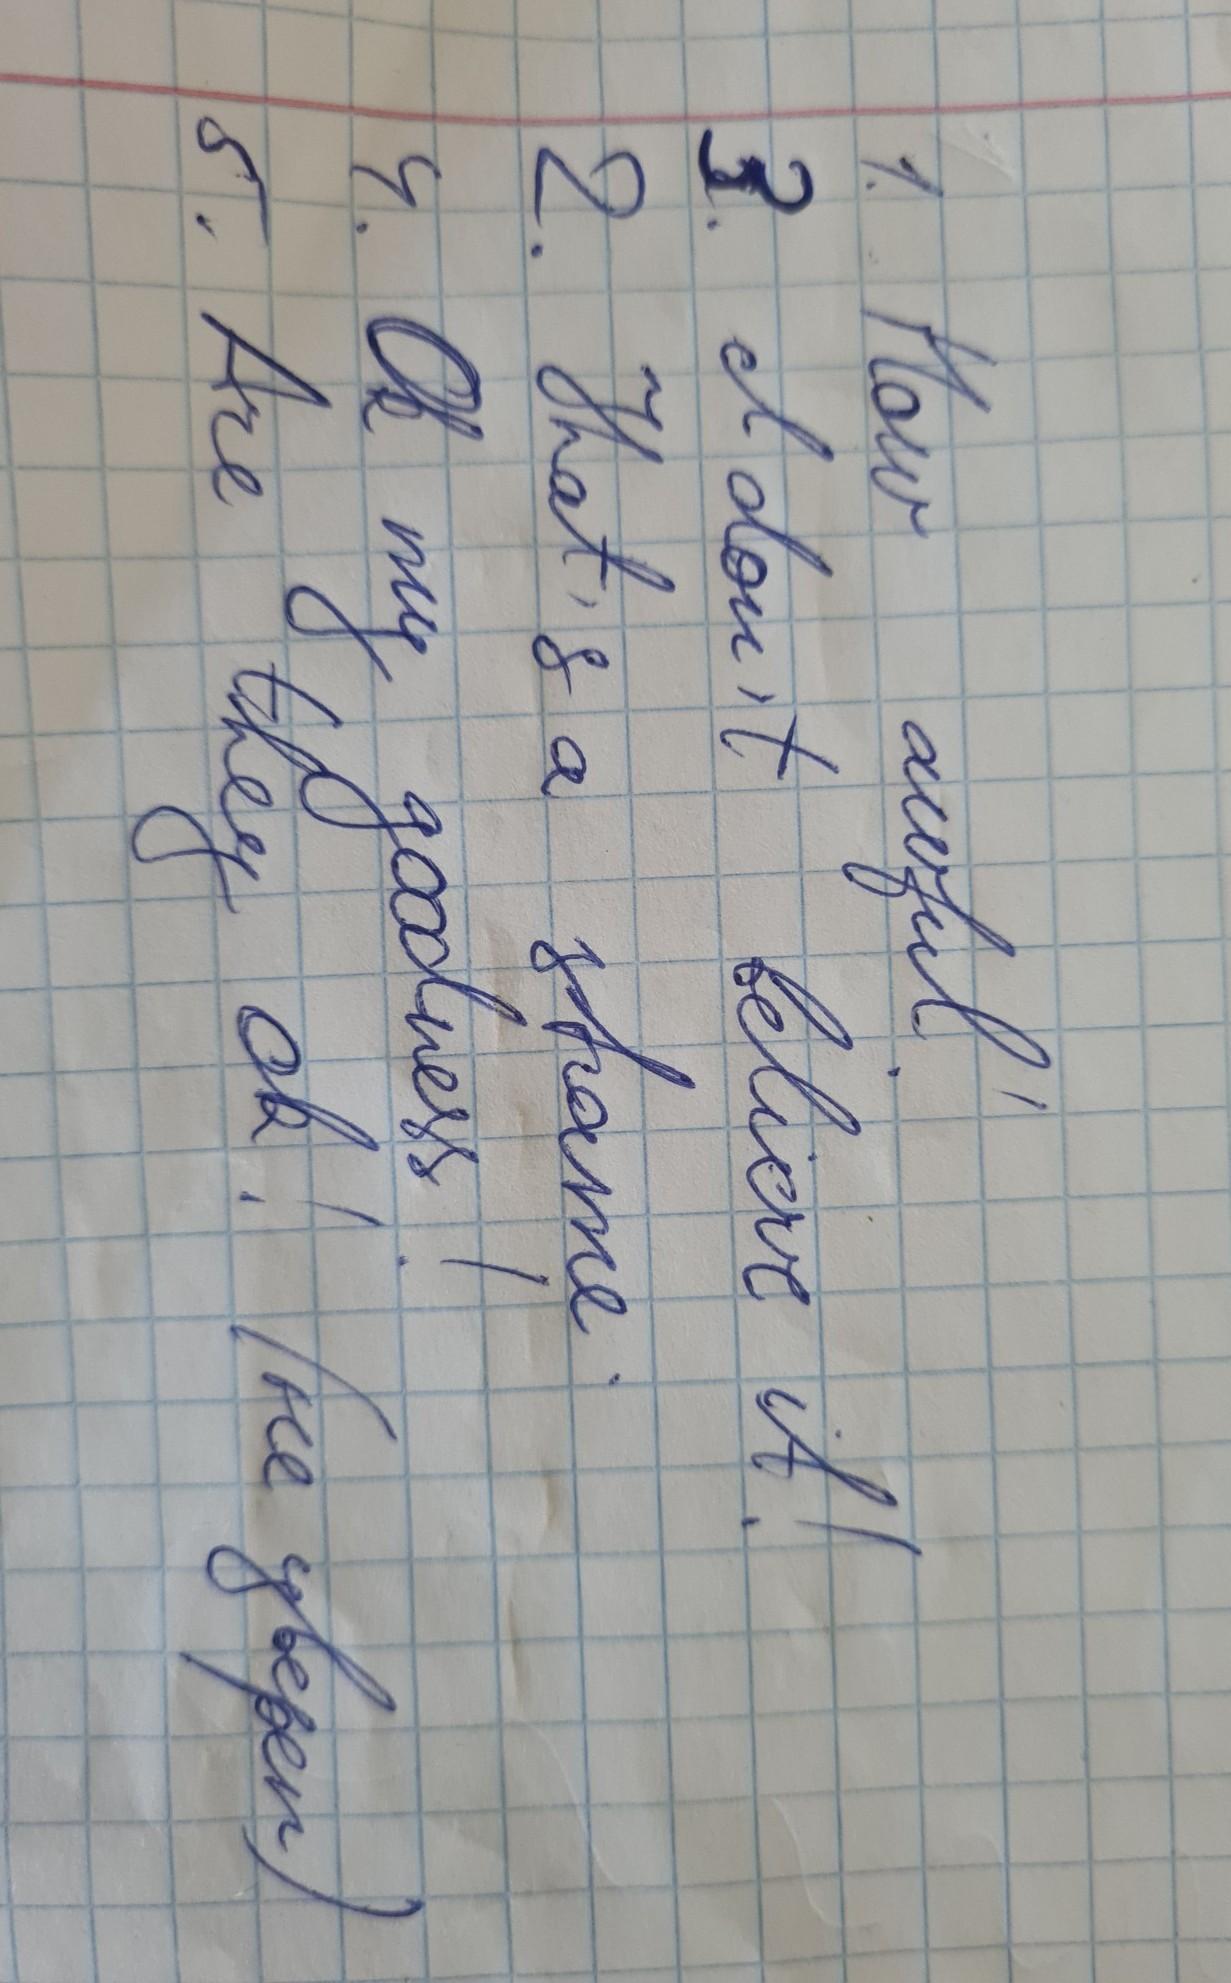 1. How awful!
3. I don't believe it!
2. That's a shame.
4. Oh my goodness!
5. Are they ok! (не уверен)